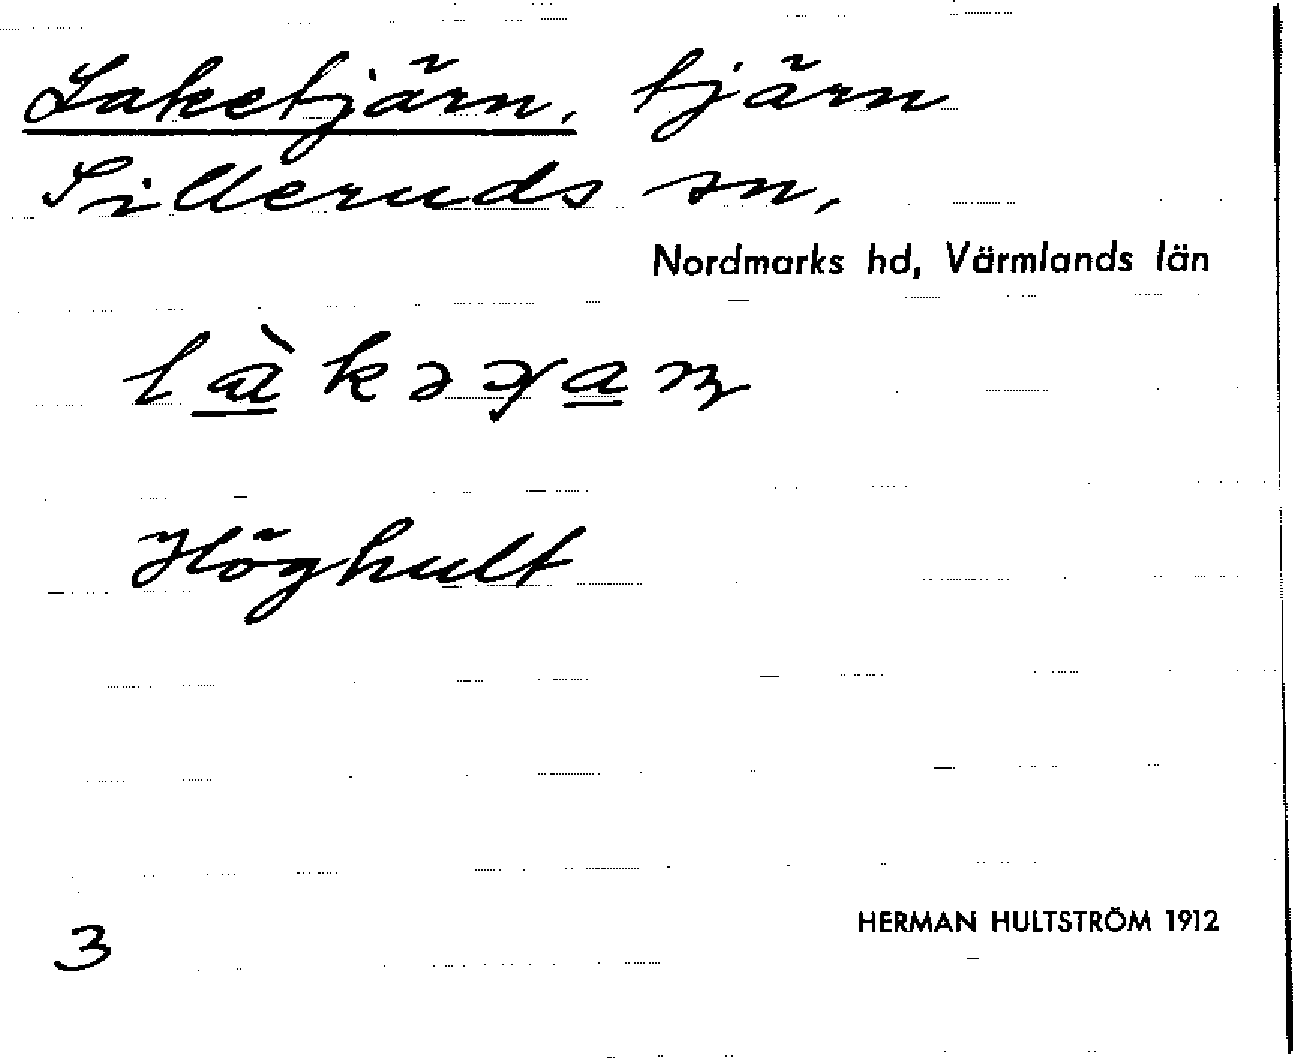 Laketjärn, tjärn
Silleruds sn,
Nordmarks hd, Värmlands län
Höghult
HERMAN HULTSTRÖM 1912
3